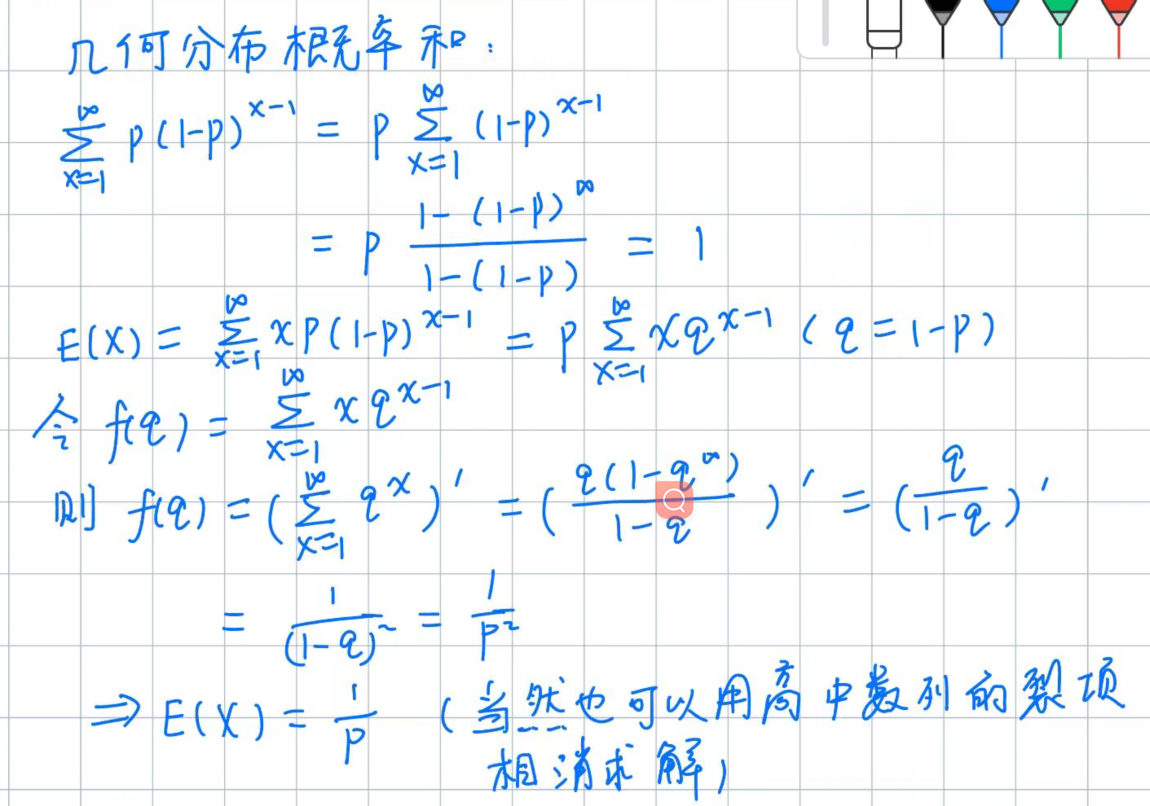 几何分布概率和：
∑_{x=1}^{∞} p(1-p)^{x-1} = p ∑_{x=1}^{∞} (1-p)^{x-1}
= p \frac{1-(1-p)^{∞}}{1-(1-p)} = 1
E(X) = ∑_{x=1}^{∞} xp(1-p)^{x-1} = p ∑_{x=1}^{∞} xq^{x-1} (q=1-p)
令 f(q) = ∑_{x=1}^{∞} xq^{x-1}
则 f(q) = (∑_{x=1}^{∞} q^{x})' = (\frac{q(1-q^{∞})}{1-q})' = (\frac{q}{1-q})'
= \frac{1}{(1-q)^2} = \frac{1}{p^2}
⇒ E(X) = \frac{1}{p} (当然也可以用高中数列的裂项
相消求解)